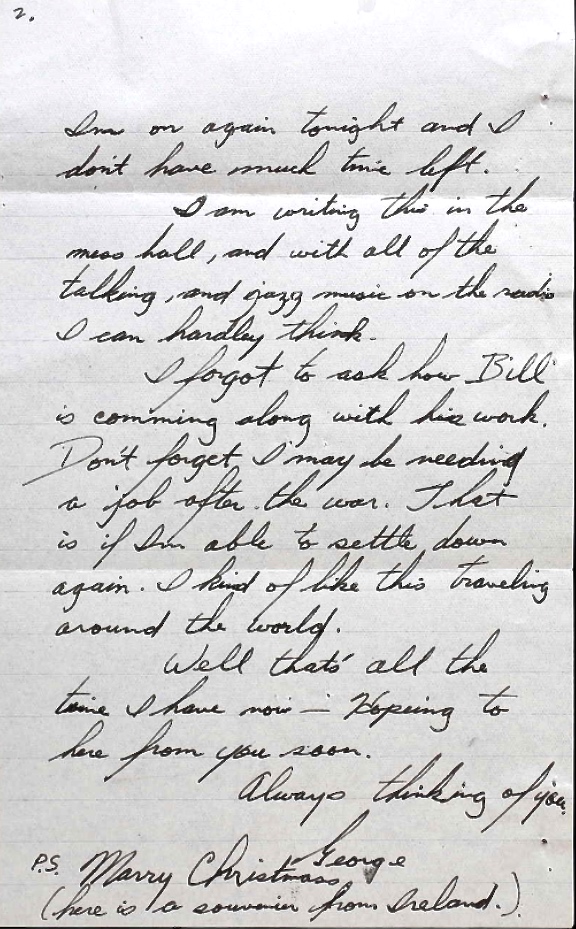 2.
I'm on again tonight and I
don't have much time left.
I am writing this in the
mess hall, and with all of the
talking, and jazz music on the radio
I can hardley think.
I forgot to ask how Bill
is comming along with his work.
Don't forget I may be needing
a job after the war. That
is if I'm able to settle down
again. I kind of like this traveling
around the world.
Well thats' all the
time I have now — Hopeing to
here from you soon.
Always thinking of you.
George
P.S. Marry Christmass
(here is a souvenier from Ireland.)